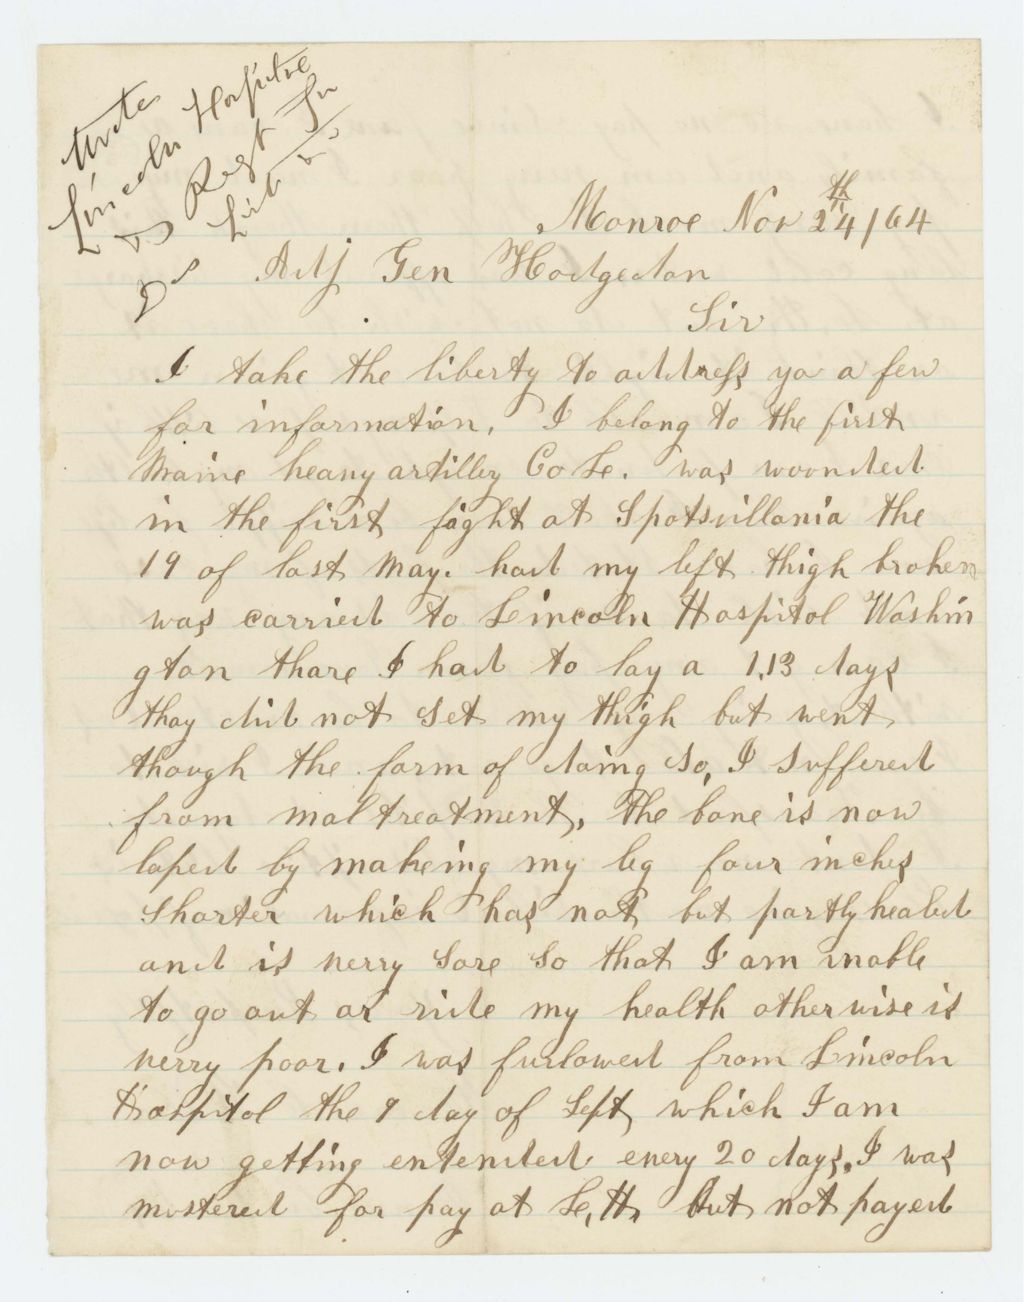 Write
Lincoln Hospital
Regt
Monroe Nov 24th/64
Adj Gen Hodgedon
Sir
I take the liberty to address yo a few
for information. I belong to the first
Maine heavy artillery Co L. was woonded
in the first fight at Spotsvillania the
19 of last May. had my left thigh broken
was carried to Lincoln Hospitol Washin
gton thare I had to lay a 113 days
thay did not set my thigh but went
though the form of doing so, I suffered
from maltreatment, The bone is now
laped by makeing my leg four inches
shorter which has not but partly healed
and is verry sore so that I am inable
to go out or ride my health otherwise is
verry poor. I was furlowed from Lincoln
Hospitol the 9 day of Sept which I am
now getting entended every 20 days, I was
mustered for pay at L, H, but not payed